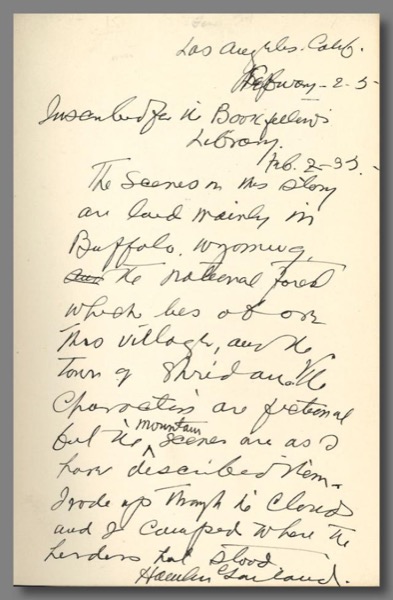 Los Angeles. Calif.
February - 2 - 3
Inscribed for the Bookfellows
Library.
Feb. 2 - 33. -
The scenes in this story
are laid mainly in
Buffalo, Wyoming,
and the national forest
which lies above
this village, and the
town of Sheridan. The
characters are fictional
but the mountain scenes are as I
have described them.
I rode up though the clouds
and I camped where the
herders had stood
Hamlin Garland.